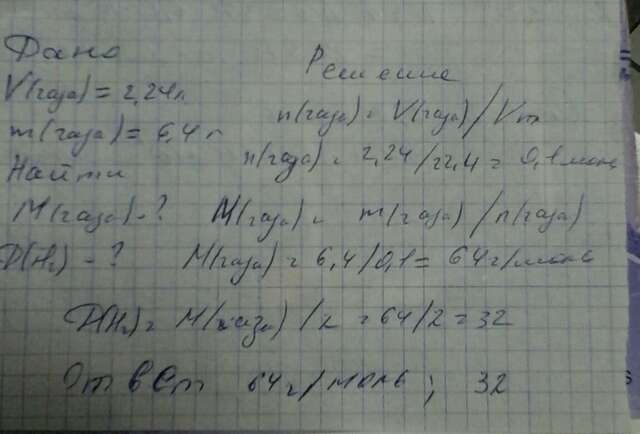 Дано
Решение
V(газа) = 2,24л
n(газа) = V(газа)/Vm
m(газа) = 6,4 г
n(газа) = 2,24/22,4 = 0,1 моль
Найти
M(газа) - ? M(газа) = m(газа)/n(газа)
D(H₂) - ? M(газа) = 6,4/0,1 = 64 г/моль
D(H₂) = M(газа)/2 = 64/2 = 32
Ответ 64 г/моль; 32